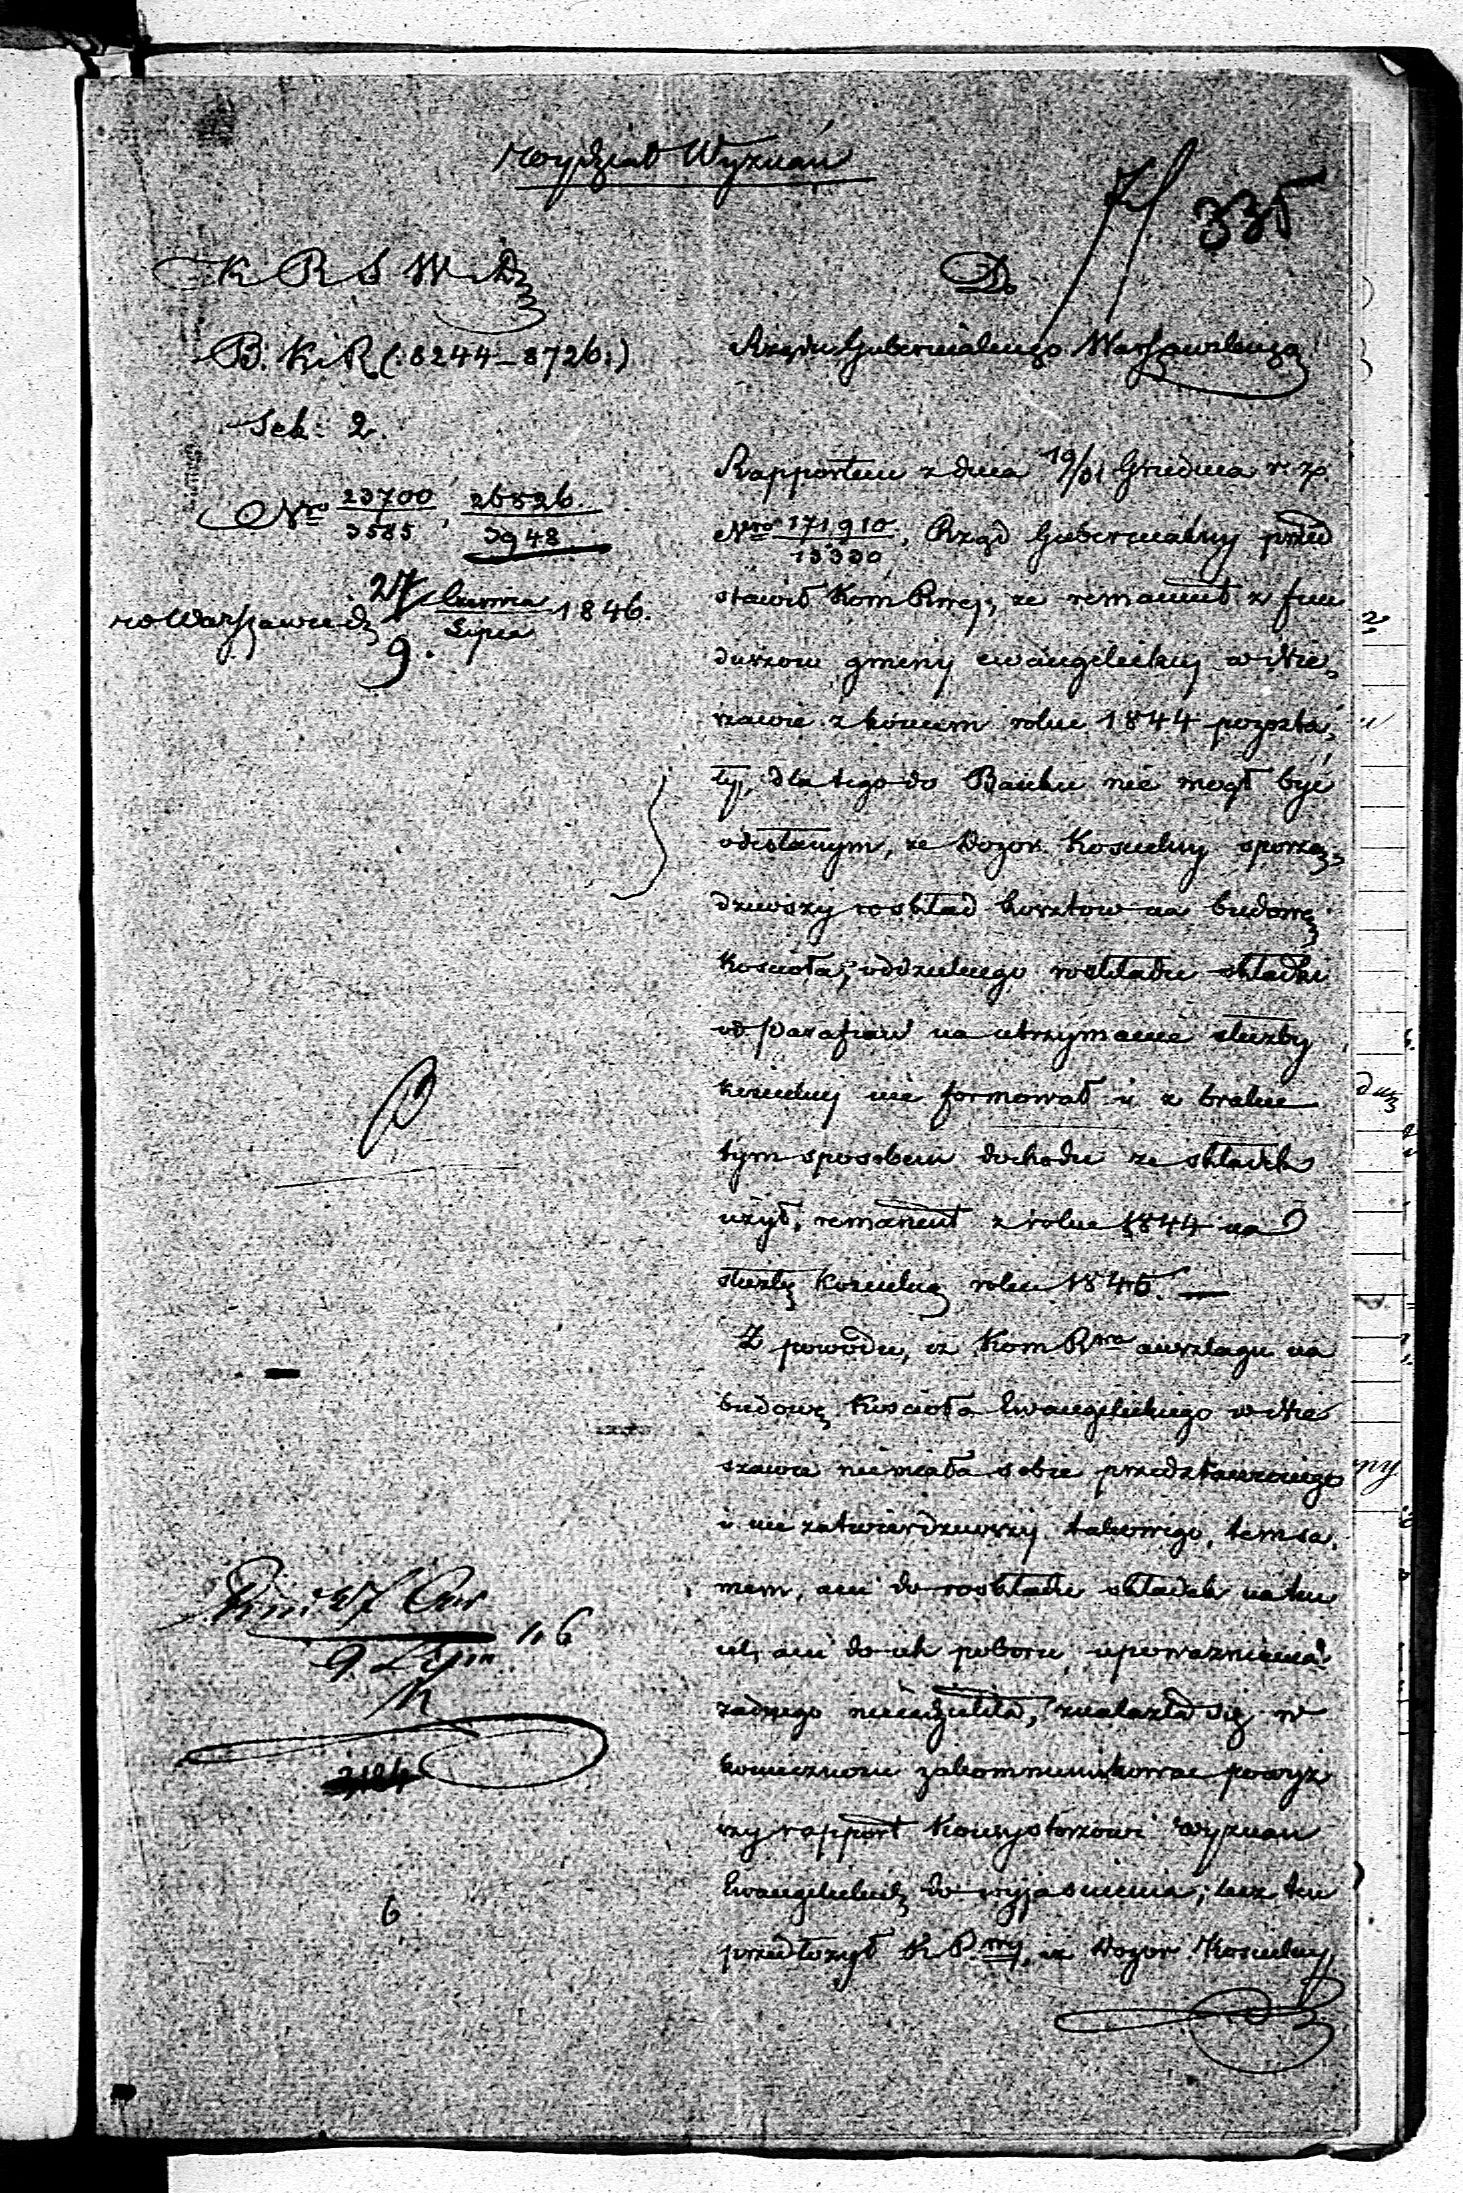 Wydział Wyznań
335
K R S W i D
B. K. R (: 8244 – 8726 :)
Sek: 2.
Nro 23700/3585, 26826/3948
w Warszawie d. 27 Czerwca / 9. Lipca 1846.
Do
Rządu Gubernialnego Warszawskiego
Rapportem z dnia 19/31 Grudnia r. z.
Nro 171910/13330, Rząd Gubernialny przed
stawił Kom Rwej, że remanent z fun
duszow gminy ewangelickiej w Nie
szawie z końcem roku 1844 pozosta
ły, dla tego do Banku nie mogł być
odesłanym, że Dozor Koscielny sporzą
dziwszy roskład kosztow na budowę
Koscioła, oddzielnego roskładu składki
od Parafian na utrzymanie służby
koscielnej nie formował i z braku
tym sposobem dochodu ze składek
użył, remanent z roku 1844 na
służbę Koscielną roku 1845. —
Z powodu, iż Kom Rwa anszlagu na
budowę Koscioła Ewangelickiego w Nie
szawie niemiała sobie przedstawionego
i nie zatwierdziwszy takowego, temsa
mem, ani do roskładu składek na ten
cel, ani do ich poboru, upoważnienia
żadnego nieudzieliła, znalazła się w
konieczności zakommunikować powyż
szy rapport Konsystorzowi Wyznań
Ewangelickich do wyjasnienia; lecz ten
przedłożył K R.wej, iż Dozor Koscielny
27 Czer
9. Lipca
46
2184
6